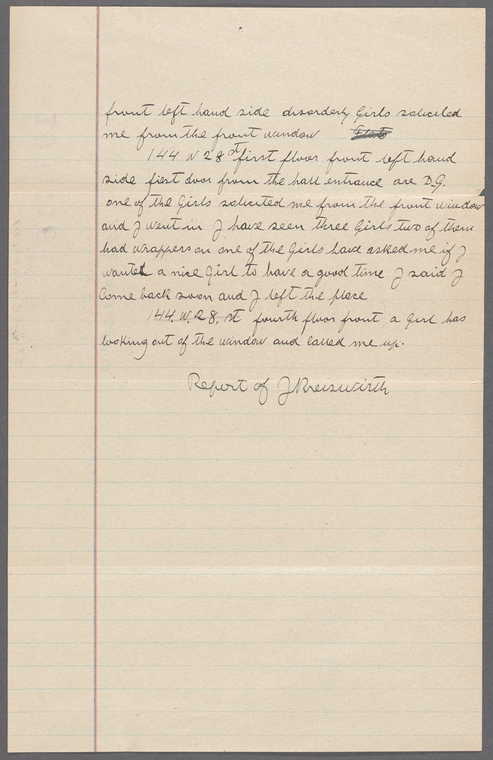 front left hand side disorderly Girls soliceled
me from the front window
144 W 28 st first floor front left hand
side first door from the hall entrance are D.G.
one of the Girls solicited me from the front window
and J went in J have seen three Girls two of them
had wrappers on one of the Girls have asked me if J
wanted a nice Girl to have a good time J said J
Come back soon and J left the place
144. W. 28. st fourth floor front a Girl has
looking out of the window and called me up.
Report of J Kreiswirth